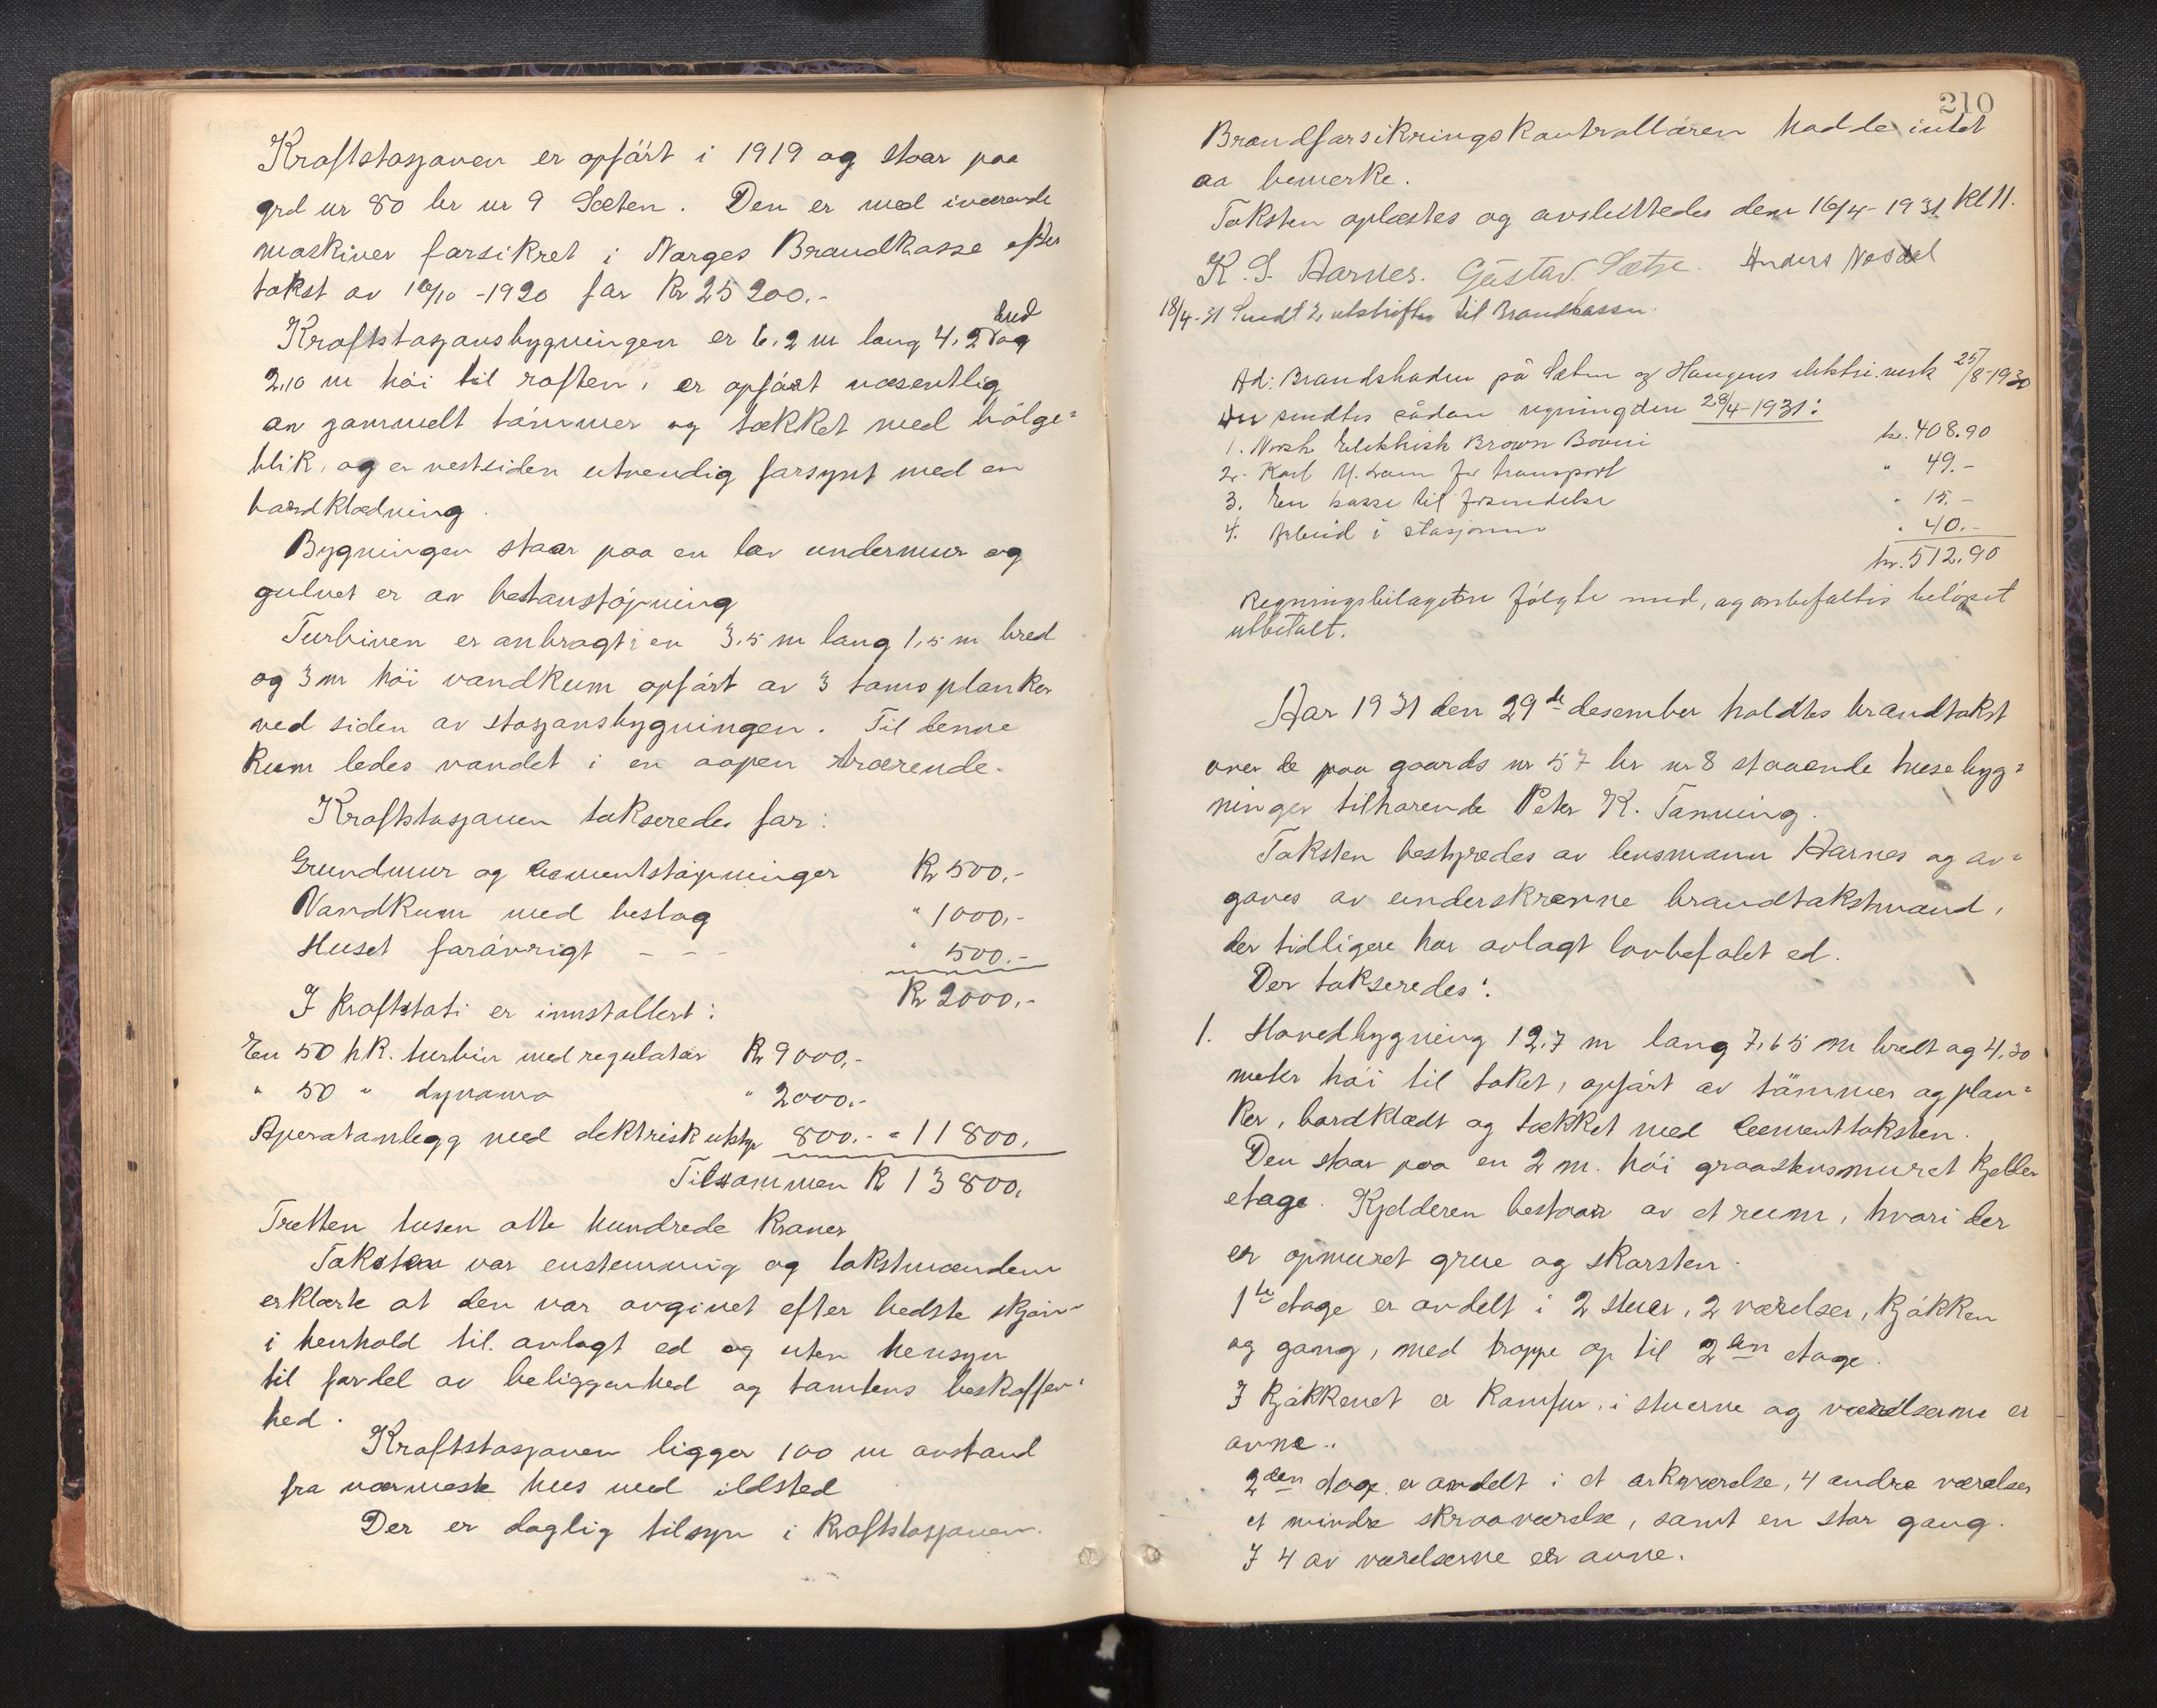 Kraftstasjonen er opført i 1919 og staar paa
grd nr 80 br nr 9 Sæten. Den er med iværende
maskiner forsikret i Norges Brandkasse efter
takst av 16/10 -1920 for Kr 25200.-
Kraftstasjonsbygningen er 6,2 m lang 4,2 bred og
2,10 m høi til roften, er opført væsentlig
av gammelt tømmer og tækket med bølge=
blik, og er vestsiden utvendig forsynt med en
bordklædning.
Bygningen staar paa en lav undermur og
gulvet er av betonstøpning
Turbinen er anbragt i en 3,5 m lang 1,5 m bred
og 3 m høi vandkum opført av 3 toms planker
ved siden av stasjonsbygningen. Til denne
kum ledes vandet i en aapen trærende.
Kraftstasjonen takseredes for:
Grundmur og cementstøpninger Kr 500,-
Vandkum med beslag " 1000,-
Huset forøvrigt - - - " 500.-
Kr 2000,-
I kraftstati er innstallert:
En 50 hk. turbin med regulator Kr 9000,-
" 50 " dynamo " 2000.-
Aperatanlegg med elektrisk utstyr 800.- = 11800.
Tilsammen Kr 13800,
Tretten tusen otte hundrede kroner
Taksten var enstemmig og takstmændene
erklærte at den var avgivet efter bedste skjøn
i henhold til avlagt ed og uten hensyn
til fordel av beliggenhed og tomtens beskaffen=
hed.
Kraftstasjonen ligger 100 m avstand
fra nærmeste hus med ildsted
Der er daglig tilsyn i kraftstasjonen.
210
Brandforsikringskontrolløren hadde intet
aa bemerke.
Taksten oplæstes og avsluttedes den 16/4-1931 kl 11.
K. S. Aarnes. Gustav Sætre. Anders Nosdal
18/4-31 Sendt 2 utskrifter til Brandkassen.
Ad: Brandskaden på Sæten og Haugens elektri.verk 25/8-1930
sendtes sådan regning den 28/4-1931:
1. Norsk Elektrisk Brown Boveri kr. 408.90
2. Karl for transport " 49.-
3. En kasse til forsendelse " 15.-
4. Arbeid i stasjonen " 40.-
kr. 512.90
Regningsbilagene følgte med, og anbefaltes beløpet
utbetalt.
Aar 1931 den 29de desember holdtes brandtakst
over de paa gaards nr 57 br nr 8 staaende husebyg=
ninger tilhørende Peter K. Tanning.
Taksten bestyredes av lensmann Aarnes og av=
gaves av underskrevne brandtakstmænd,
der tidligere har avlagt lovbefalet ed.
Der takseredes:
1. Hovedbygning 12,7 m lang 7,65 m bredt og 4,30
meter høi til taket, opført av tømmer og plan=
ker, bordklædt og tækket med cementtaksten.
Den staar paa en 2 m. høi graastensmuret kjeller
etage. Kjelderen bestaar av et rum, hvori der
er opmuret grue og skorsten.
1ste etage er avdelt i 2 stuer, 2 værelser, kjøkken
og gang, med trappe op til 2den etage.
I kjøkkenet er komfur, i stuerne og værelserne er
ovne..
2den etage er avdelt i et arkværelse, 4 andre værelser
et mindre skraaværelse, samt en stor gang.
I 4 av værelserne er ovne.